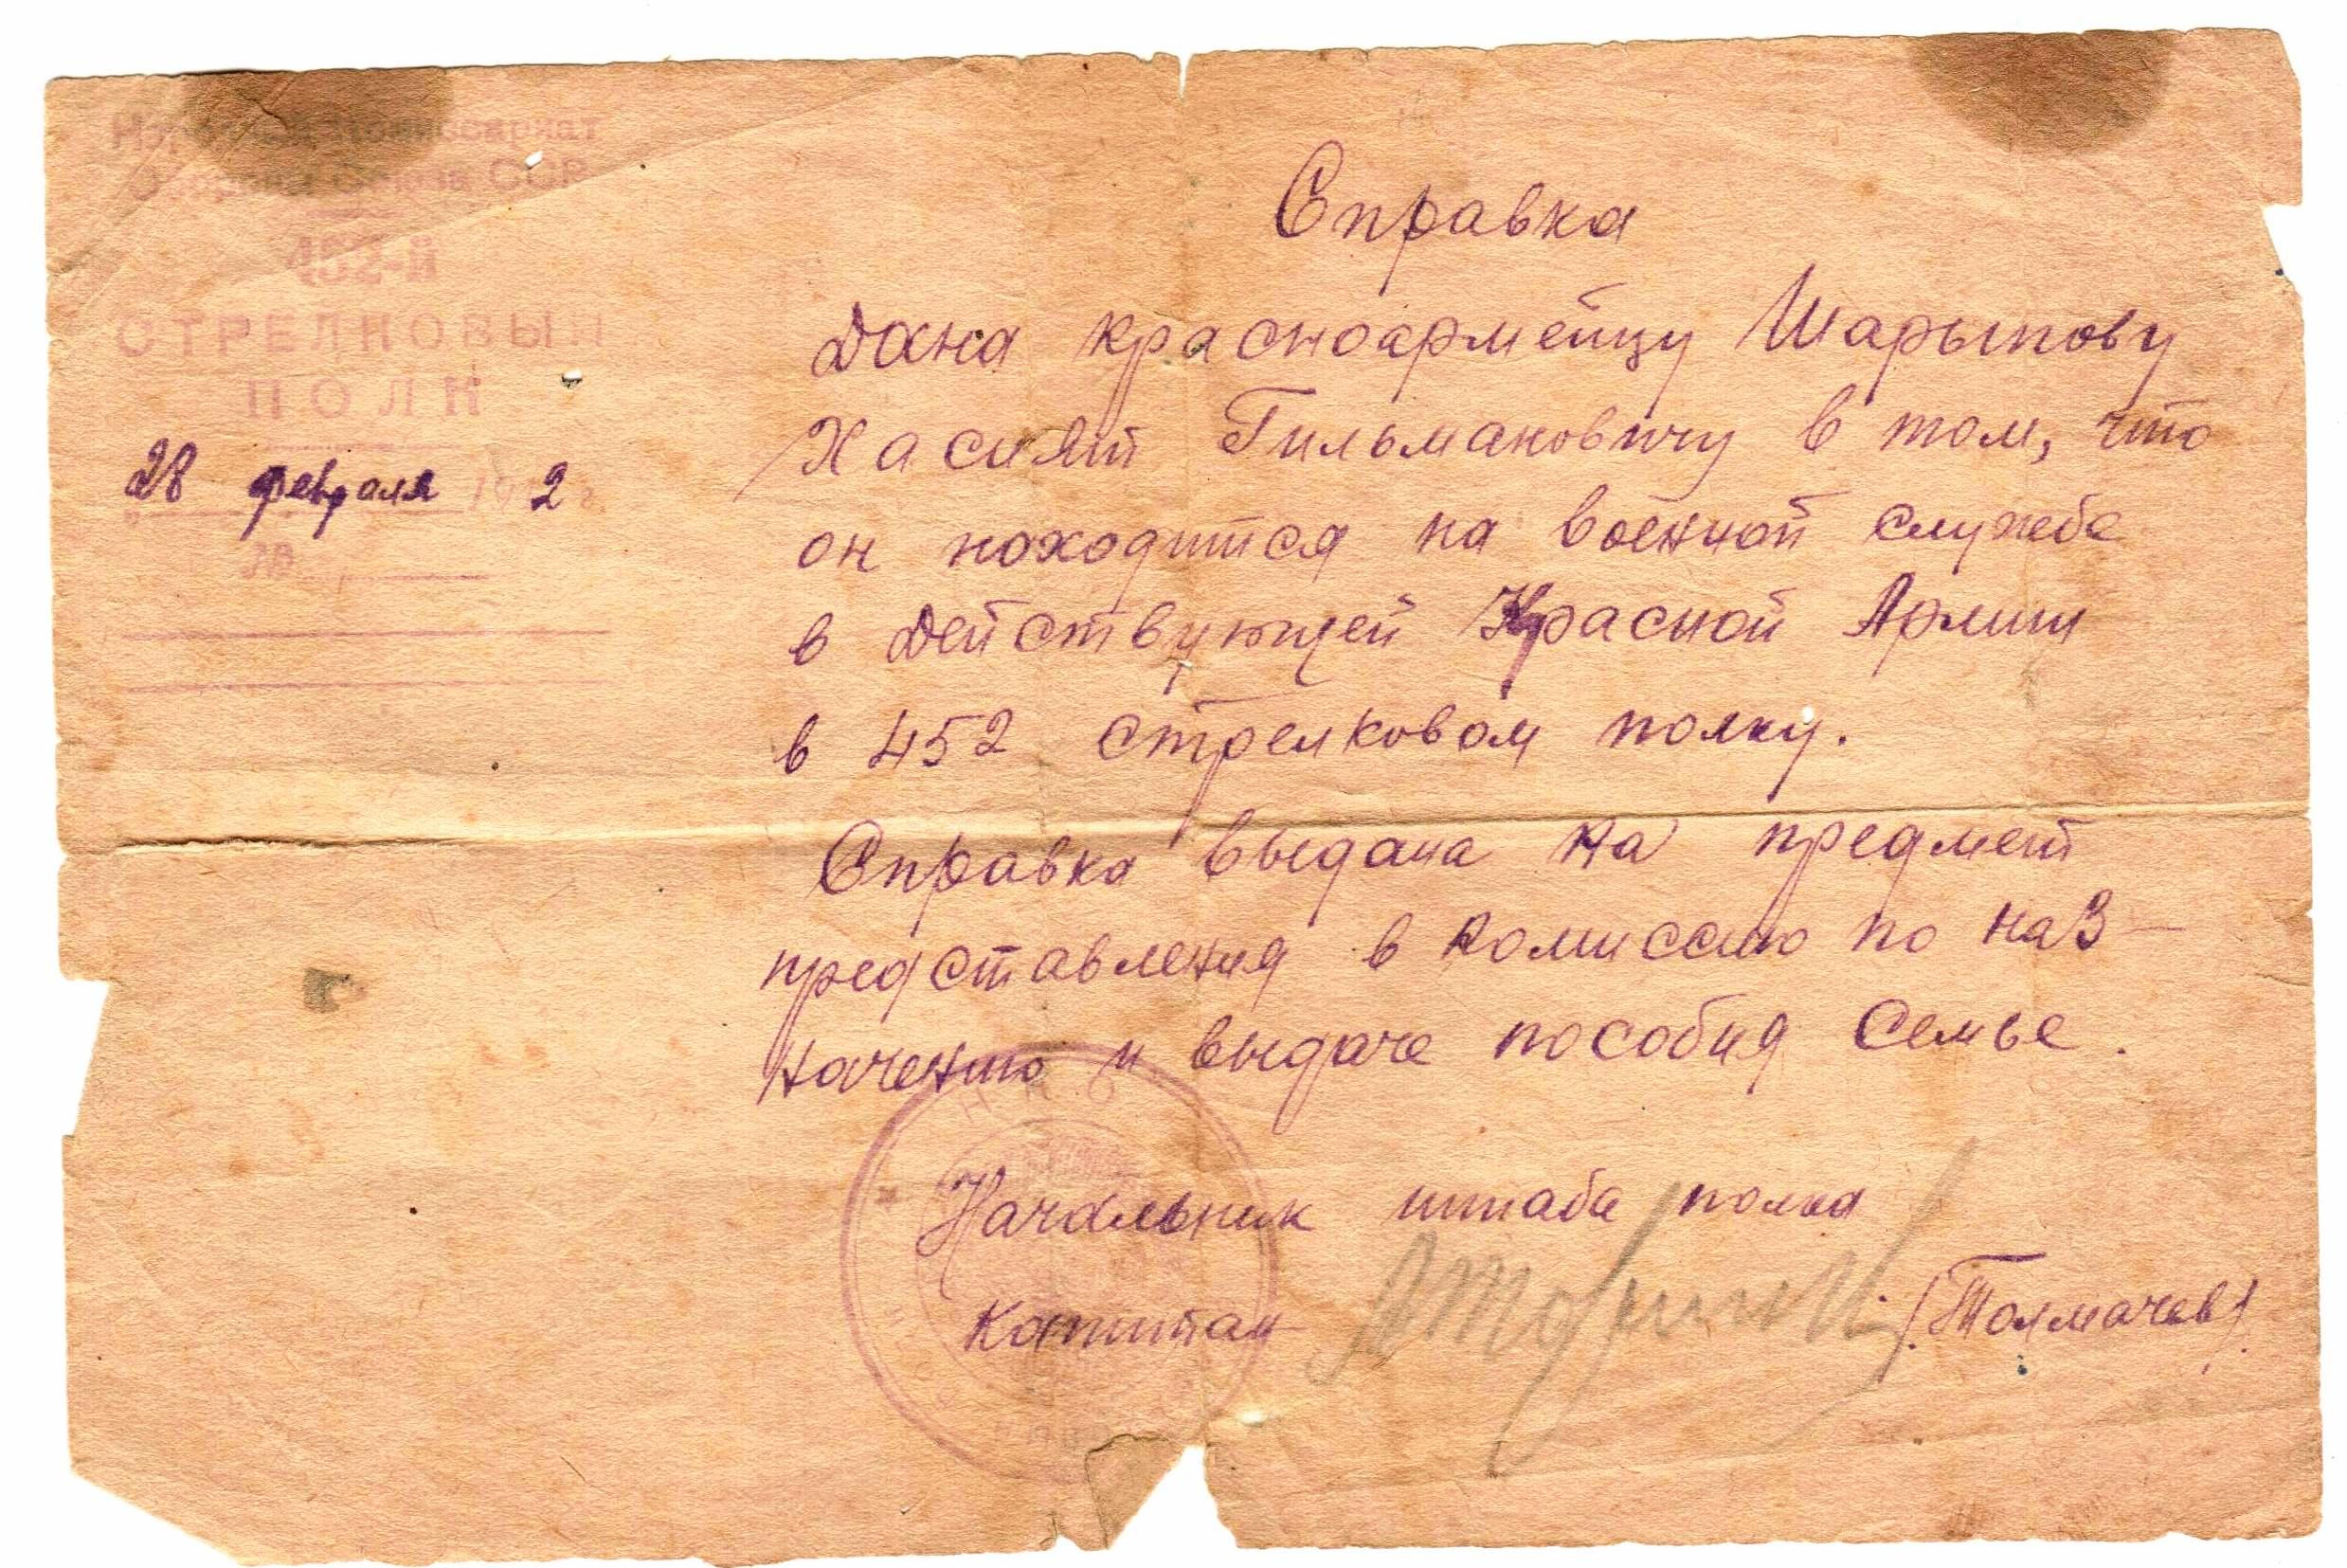 Народный Комиссариат
Обороны Союза ССР
452-й
СТРЕЛКОВЫЙ
ПОЛК
28 февраля 1942 г.
№
Справка
Дана красноармейцу Шарыпову
Гильмановичу в том, что
он находится на военной службе
в действующей Красной Армии
в 452 стрелковом полку.
Справка выдана на предмет
представления в комиссию по наз-
начению и выдаче пособия семье.
Начальник штаба полка
Капитан (Толмачев).
НКО